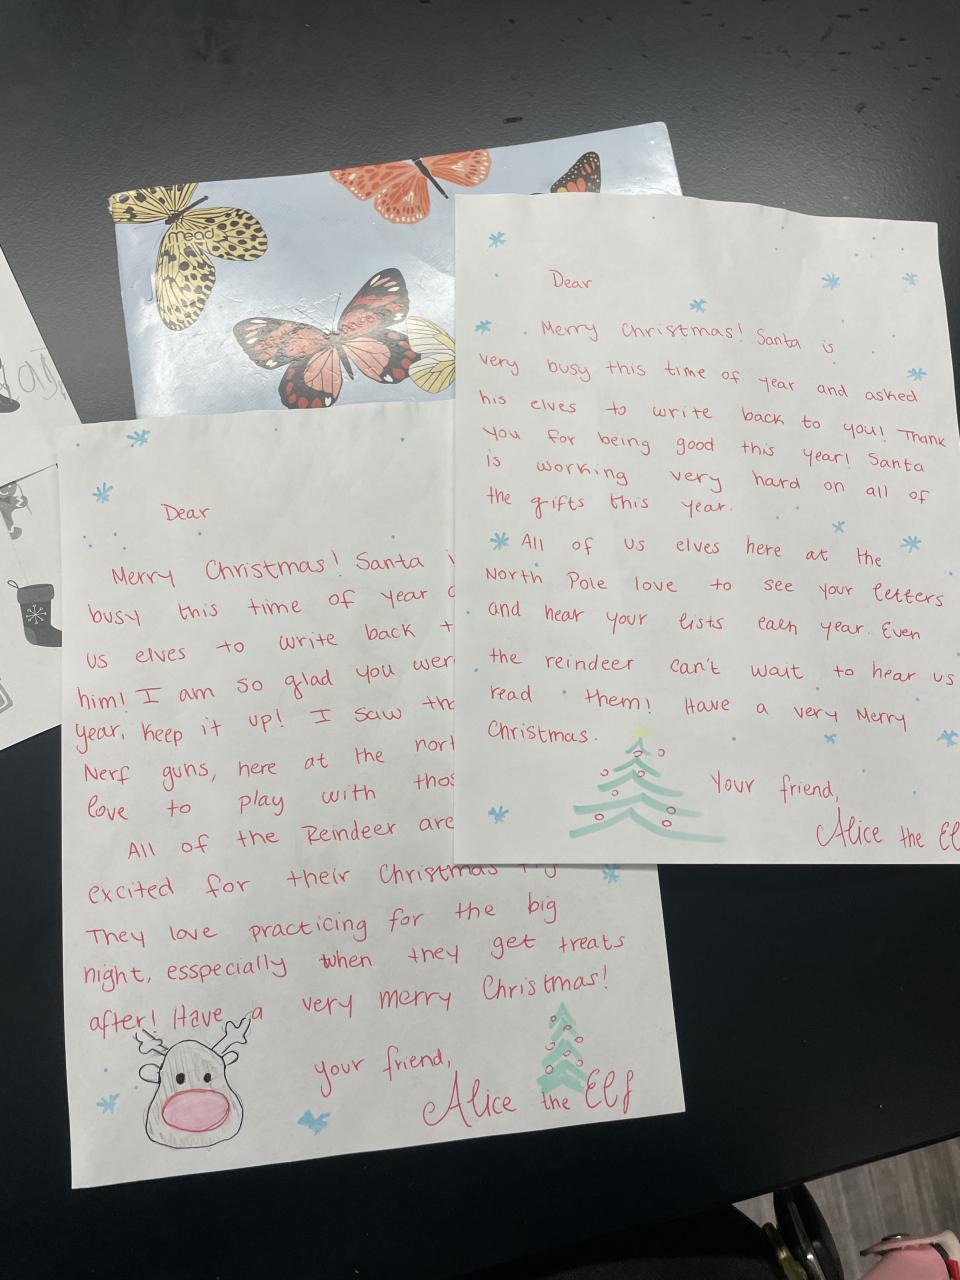 mead
Dear
Merry Christmas! Santa is
very busy this time of year and asked
his elves to write back to you! Thank
you for being good this year! Santa
is working very hard on all of
the gifts this year.
All of us elves here at the
North Pole love to see your letters
and hear your lists each year. Even
the reindeer can't wait to hear us
read them! Have a very Merry
Christmas.
Your friend,
Alice the El
Dear
Merry Christmas! Santa
busy this time of year
us elves to write back
him! I am so glad you wer
year, keep it up! I saw
Nerf guns, here at the nort
love to play with thos
All of the Reindeer are
excited for their Christmas
They love practicing for the big
night, esspecially when they get treats
after! Have a very merry Christmas!
your friend,
Alice the Elf